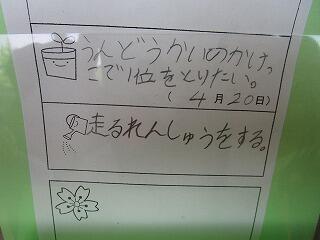 うんどうかいのかけっ
こで1位をとりたい。
(4月20日)
走るれんしゅうをする。